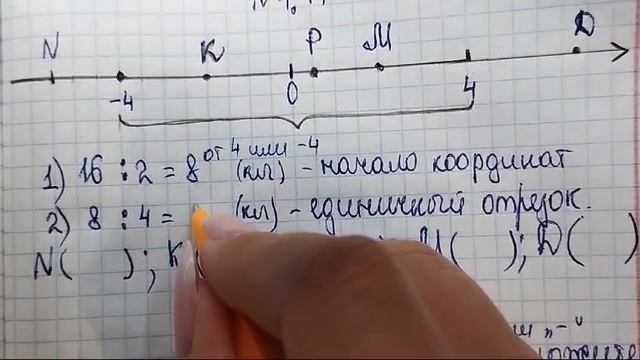 N K P M D
-4 0 4
1) 16 : 2 = 8 от 4 или -4 (кл) - начало координат
2) 8 : 4 = (кл) - единичный отрезок.
N( ); K ( M( ); D( )